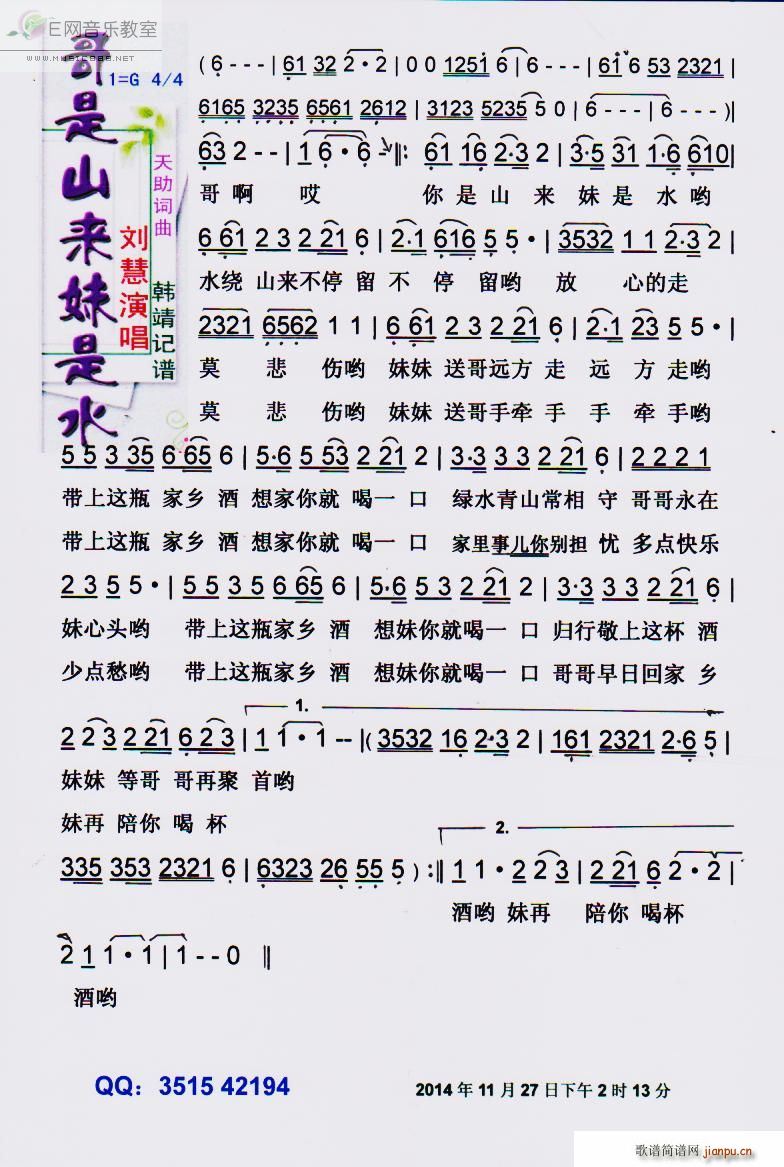 E网音乐教室
WWW.MUSICEGG.COM
哥是山来妹是水
1=G 4/4
天助词曲
刘慧演唱
韩靖记谱
(6 - - - | 61 32 2·2 | 0 0 1251 6 | 6 - - - | 61 6 53 2321 |
6165 3235 6561 2612 | 3123 5235 5 0 | 6 - - - | 6 - - -)|
63 2 - - | 1 6·6 - ‖: 61 16 2·3 2 | 3·5 31 1·6 610|
哥啊 哎 你是山来妹是水哟
6 61 2 3 2 21 6 | 2·1 616 5 5· | 3532 1 1 2·3 2 |
水绕 山来不停 留 不 停 留哟 放 心的走
2321 6562 1 1 | 6 61 2 3 2 21 6 | 2·1 23 5 5· |
莫 悲 伤哟 妹妹 送哥远方 走 远 方 走哟
莫 悲 伤哟 妹妹 送哥手牵 手 手 牵 手哟
5 5 3 35 6 65 6 | 5·6 5 53 2 21 2 | 3·3 3 3 2 21 6 | 2 2 2 1
带上这瓶 家乡 酒 想家你就 喝一 口 绿水青山常相 守 哥哥永在
带上这瓶 家乡 酒 想家你就 喝一 口 家里事儿你别担 忧 多点快乐
2 3 5 5· | 5 5 3 5 6 65 6 | 5·6 5 3 2 21 2 | 3·3 3 3 2 21 6 |
妹心头哟 带上这瓶家乡 酒 想妹你就喝一 口 归行敬上这杯 酒
少点愁哟 带上这瓶家乡 酒 想妹你就喝一 口 哥哥早日回家 乡
1.
2 2 3 2 21 6 2 3 | 1 1·1 - - |( 3532 16 2·3 2 | 161 2321 2·6 5 |
妹妹 等哥 哥再聚 首哟
妹再 陪你 喝 杯
2.
335 353 2321 6 | 6323 26 55 5 ) :‖ 1 1· 2 2 3 | 2 21 6 2·2 |
酒哟 妹再 陪你 喝杯
2 1 1·1 | 1 - - 0 ‖
酒哟
QQ：3515 42194
2014 年 11 月 27 日下午 2 时 13 分
歌谱简谱网 jianpu.cn